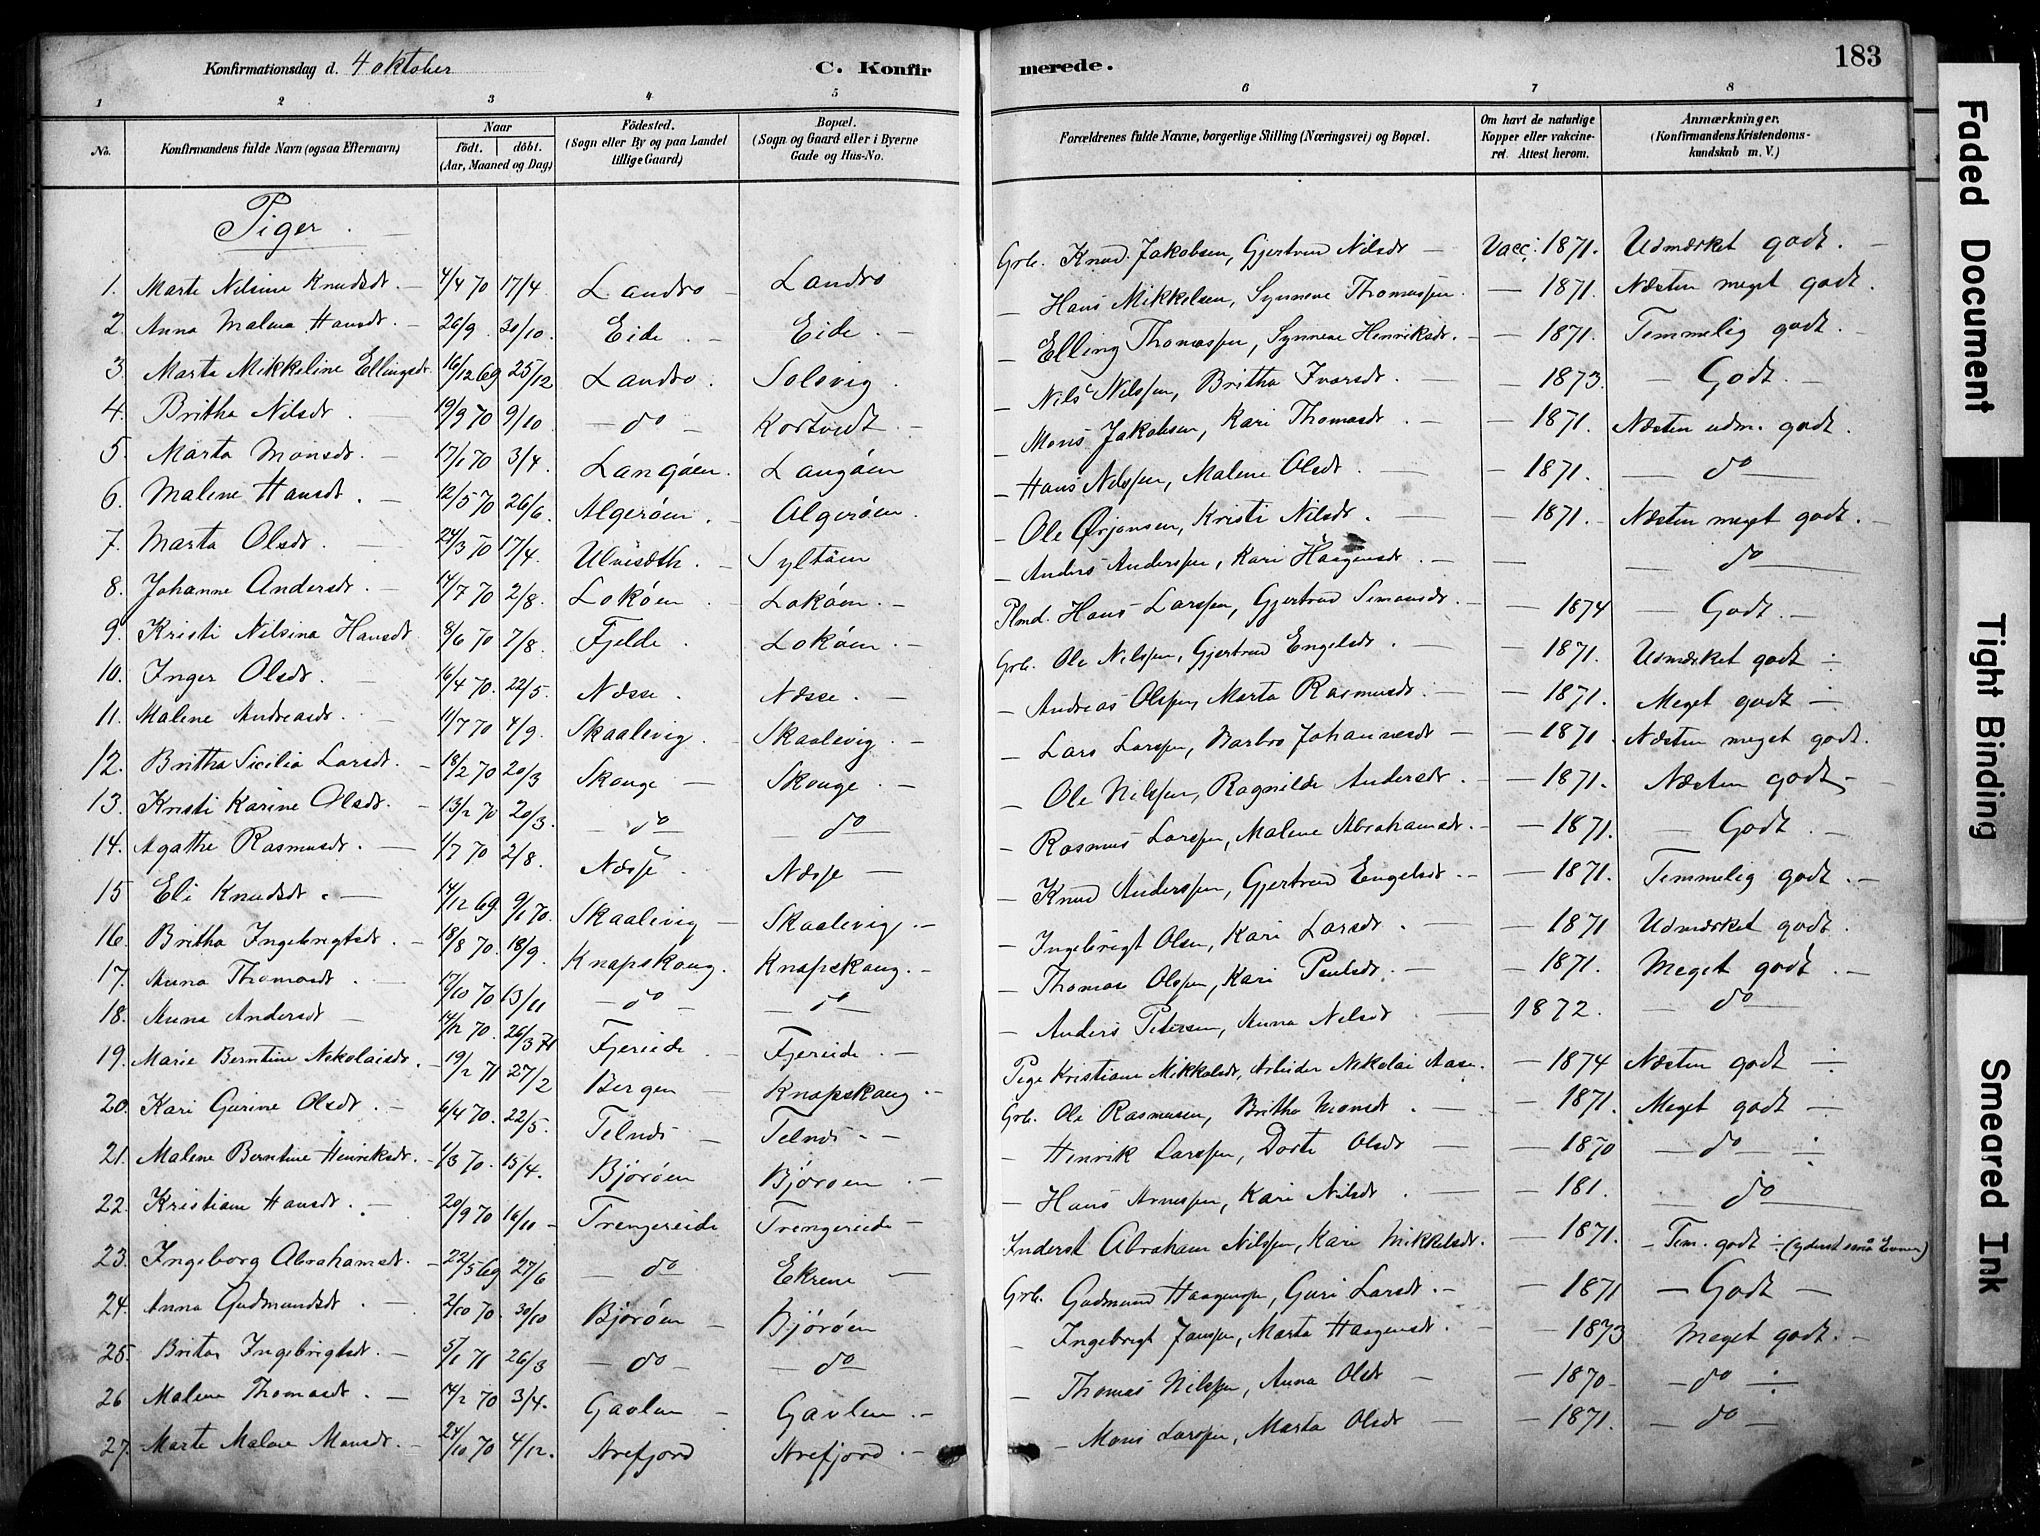 Konfirmationsdag d. 4 oktober C. Konfirmerede. 183
1 2 3 4 5 6 7 8
No. Konfirmandens fulde Navn (ogsaa Efternavn) Naar födt. döbt. (Aar, Maaned og Dag) Födested. (Sogn eller By og paa Landet tillige Gaard) Bopæl. (Sogn og Gaard eller i Byerne Gade og Hus-No. Forældrenes fulde Navne, borgerlige Stilling (Næringsvei) og Bopæl. Om havt de naturlige Kopper eller vakcineret. Attest herom. Anmærkninger, (Konfirmandens Kristendomskundskab m. V.)
Piger.
1. Marte Nilsine Knudsdt. 4/4 70 17/4 Landro Landro Grb. Knud Jakobsen, Gjertrud Nilsdt Vacc. 1871. Udmærket godt.
2. Anna Malena Hansdt. 26/9 30/10. Eide Eide Hans Mikkelsen, Synneve Thomasspn. 1871. Næsten meget godt.
3. Marta Mikkeline Ellingsdt. 16/12 69 25/12 Landro. Solsvig. Elling Thomasspn, Synneve Henriksdt. 1871. Temmelig godt.
4. Britha Nilsdt. 19/9 70 9/10 do Kortvedt Nils Nilsspn, Britha Ivarsdt. 1873. Godt.
5. Marta Monsdt. 17/1 70 3/4 Langöen. Langöen Mons Jakobsen, Kari Thomasdt. 1871. Næsten udm. godt.
6. Malene Hansdt. 12/5 70 26/6. Algeröen. Algeröen. Hans Nilsspn, Malene Olsdt. 1871. do
7. Marta Olsdt. 24/3 70 17/4. Ulvesæth. Syltöen Ole Örjansen, Kristi Nilsdt. 1871. Næsten meget godt.
8. Johanne Andersdt. 14/7 70 2/8. Loköen Loköen. Anders Andersspn, Kari Haagensdt. do
9. Kristi Nilsina Hansdt 8/6 70 7/8. Fjelde. Loköen. Plmd. Hans Larsspn, Gjertrud Simonsdt. 1874 Godt.
10. Inger Olsdt. 16/4 70. 22/5. Næsse. Næsse. Grb. Ole Nilsspn, Gjertrud Engelsdt. 1871. Udmærket godt ÷
11. Malene Andreasdt. 11/7 70 4/9. Skaalevig. Skaalevig. Andreas Olsspn, Marta Rasmusdt. 1871. Meget godt ÷
12. Britha Sicilia Larsdt. 18/2 70 20/3 Skouge Skouge. Lars Larsspn, Barbro Johannesdt 1871. Næsten meget godt.
13. Kristi Karine Olsdt. 13/2 70 20/3. do do Ole Nilsspn, Ragnilde Andersdt. 1871. Næsten godt
14. Agathe Rasmusdt. 1/7 70 2/8. Næsse Næsse Rasmus Larsspn, Malene Abrahamsdt. 1871. Godt.
15 Eli Knudsdt. 14/12 69. 9/1 70. Skaalevig Skaalevig. Knud Andersspn, Gjertrud Engelsdt. 1871. Temmelig godt.
16. Britha Ingebrigtsdt. 18/8 70. 18/9. Knapskoug. Knapskoug. Ingebrigt Olsen, Kari Larsdt. 1871 Udmærket godt.
17. Anna Thomasdt. 17/10 70 13/11 do do Thomas Olsspn, Kari Paulsdt. 1871. Meget godt.
18. Anna Andersdt 14/12 70. 26/3 71 Fjereide. Fjereide. Anders Petersen, Anna Nelsdt 1872. do
19. Marie Berntine Nekolaisdt. 19/2 71 27/2 Bergen Knapskoug. Pige Kristiane Mikkelsdt, Arbeider Nekolai Aase. 1874 Næsten godt ÷
20. Kari Gurine Olsdt. 6/4 70. 22/5. Telnæs Telnæs Grb. Ole Rasmusen, Britha Monsdt. 1871. Meget godt ÷
21. Malene Berntine Henriksdt. 1/3 70. 15/4. Björöen Björöen Henrik Larsspn, Dorte Olsdt 1870 do ÷
22. Kristiane Hansdt. 20/9 70 16/10 Trengereide Trengereide Hans Arnesspn, Kari Nilsdt. 181. do
23. Ingeborg Abrahamsdt. 22/5 69 27/6 do Ekrene Inderst Abraham Nilsspn, Kari Mikkelsdt. 1871. Tem. godt ÷ (yderst små Evner)
24. Anna Gudmundsdt. 2/10 70. 30/10 Björöen Björöen Grb. Gudmund Haagenspn, Guri Larsdt. 1871 Godt
25. Brita Ingebrigtsdt. 5/1 71 26/3 do do Ingebrigt Jansspn, Marta Haagensdt. 1873 Meget godt.
26 Malene Thomasdt. 14/2 70 3/4. Gavlen Gavlen Thomas Nilsspn, Anna Olsdt 1870 do ÷
27. Marte Malene Monsdt. 24/10 70 4/12. Arefjord Arefjord. Mons Larsspn, Marta Olsdt 1871. do
Faded Document
Tight Binding
Smeared Ink